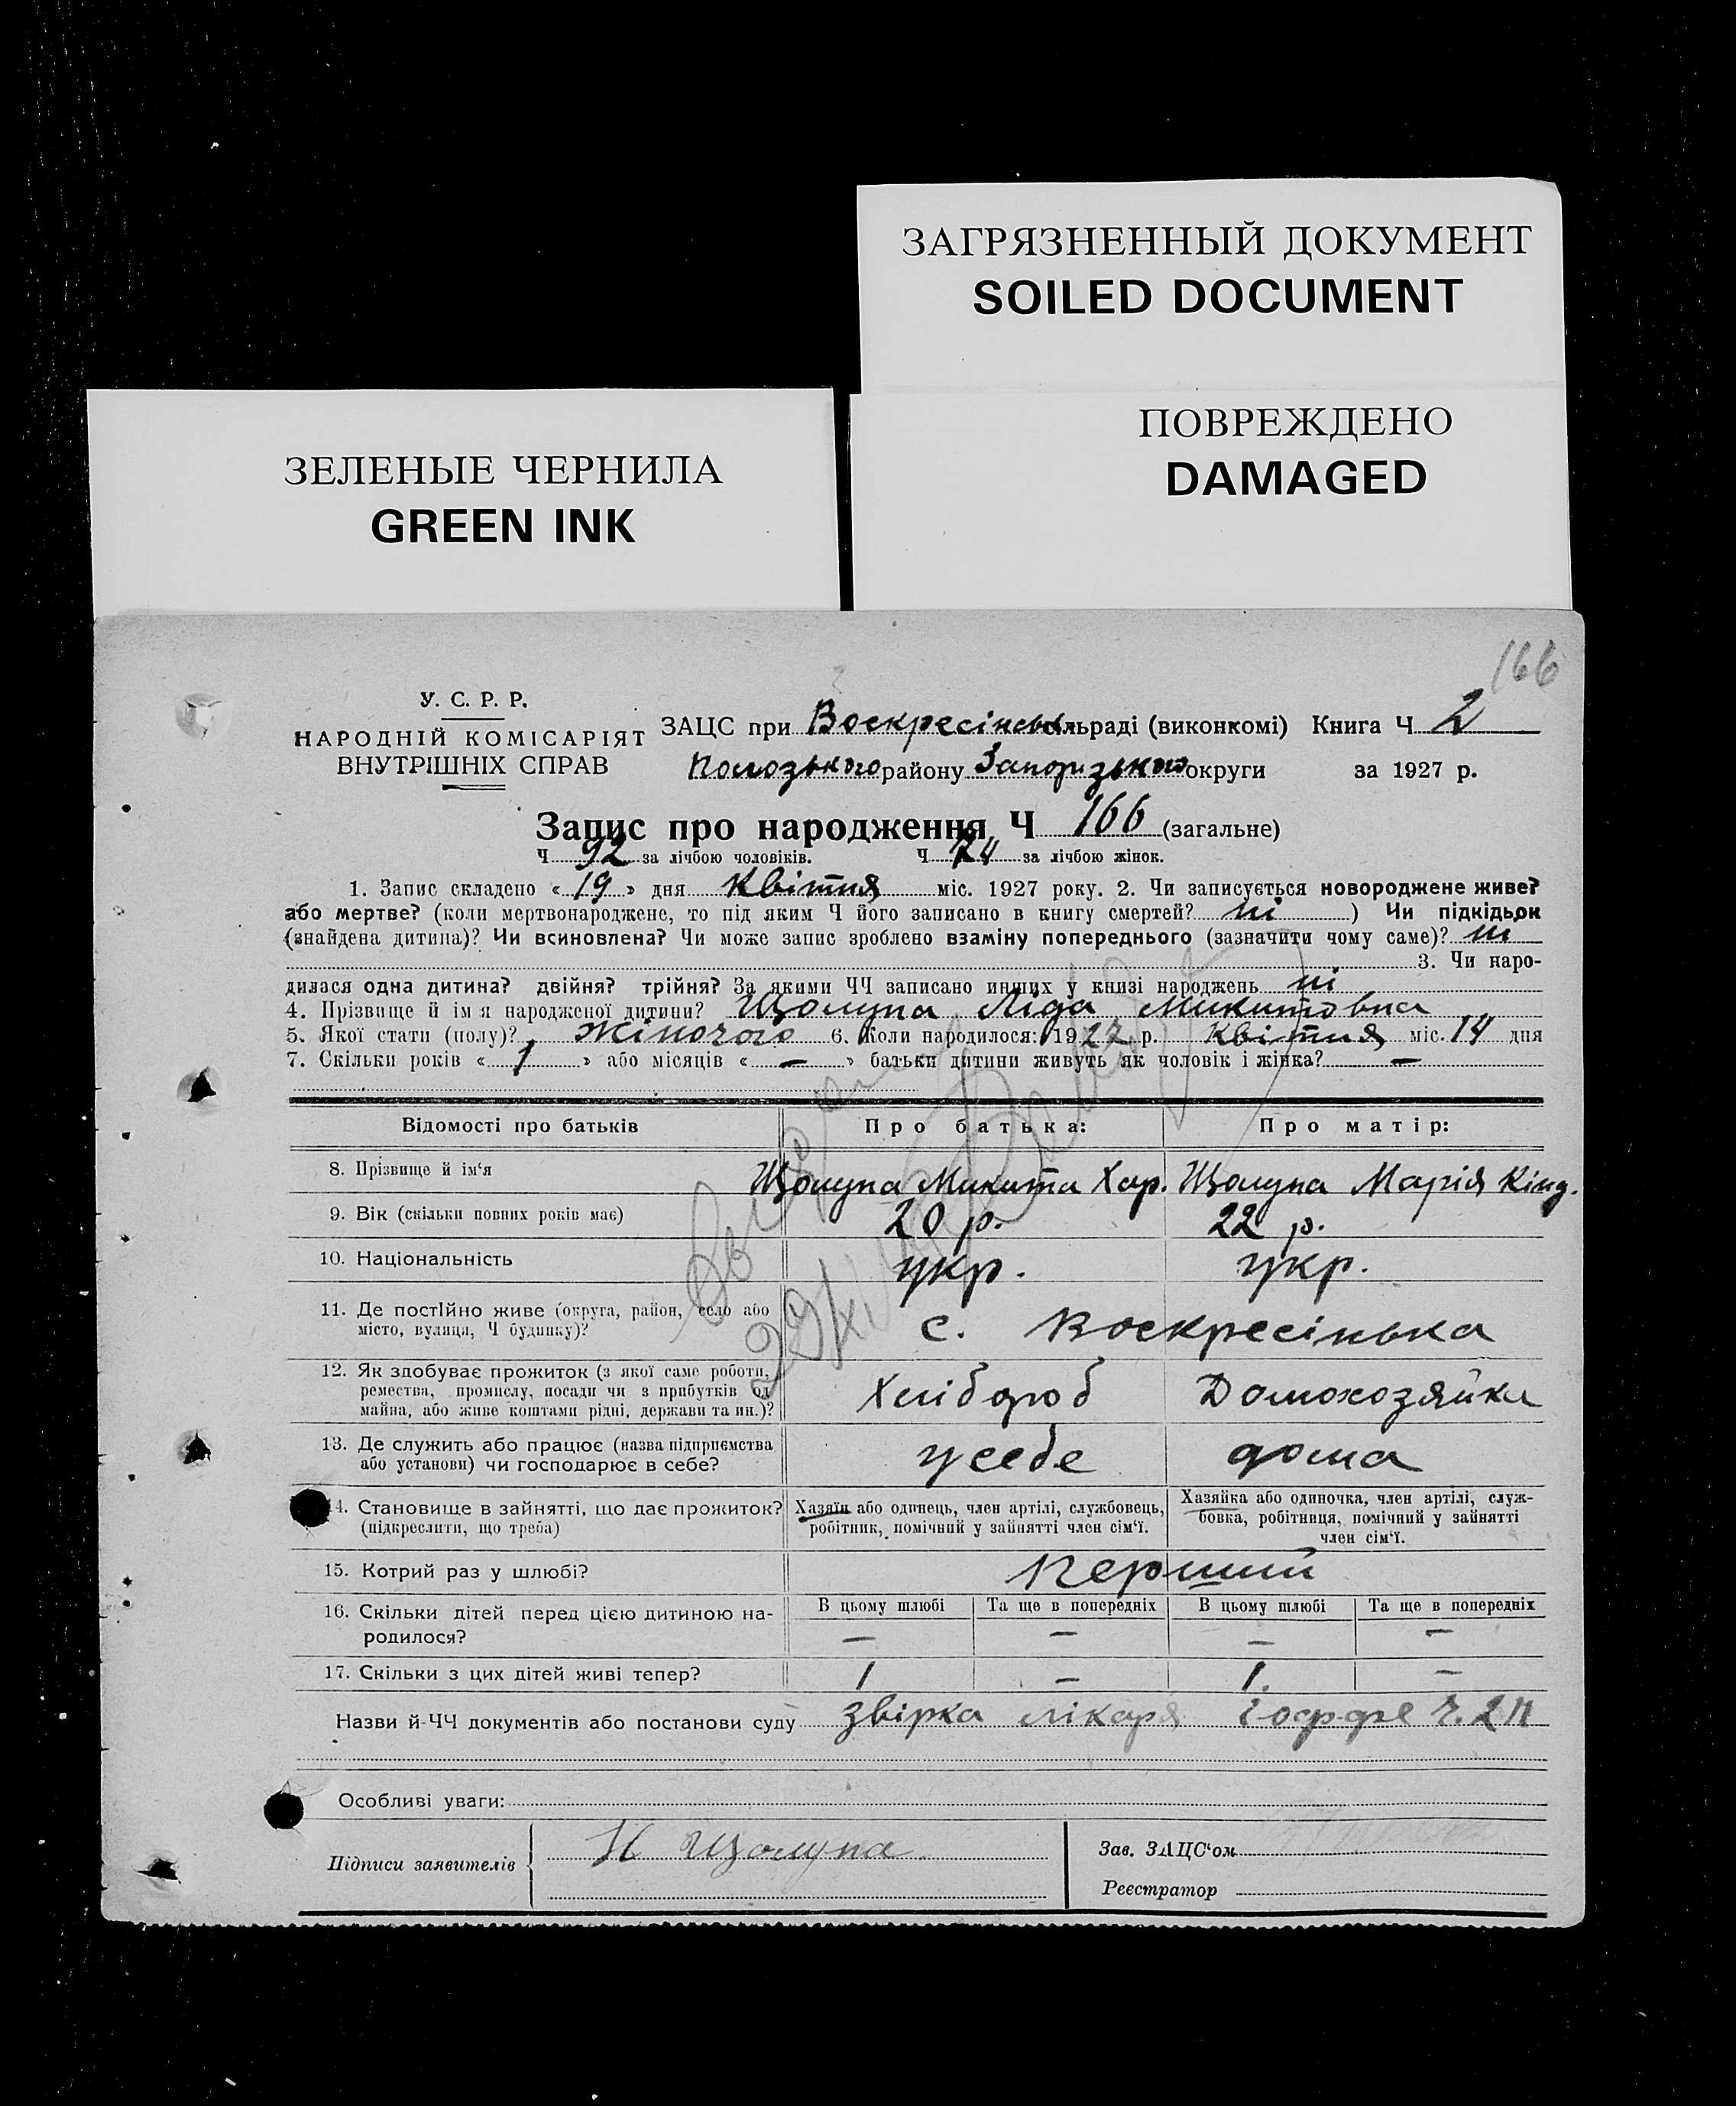 ЗАГРЯЗНЕННЫЙ ДОКУМЕНТ
SOILED DOCUMENT
ПОВРЕЖДЕНО
DAMAGED
ЗЕЛЕНЫЕ ЧЕРНИЛА
GREEN INK
166
У. С. Р. Р.
НАРОДНІЙ КОМІСАРІЯТ
ВНУТРІШНІХ СПРАВ
ЗАЦС при Воскресінськ льраді (виконкомі) Книга Ч 2
Пологзького району Запорізького округи за 1927 р.
Запис про народження Ч 166 (загальне)
Ч 92 за лічбою чоловіків. Ч 74 за лічбою жінок.
1. Запис складено « 19 » дня Квітня міс. 1927 року. 2. Чи записується новороджене живе?
або мертве? (коли мертвонароджене, то під яким Ч його записано в книгу смертей? ні ) Чи підкідьок
(знайдена дитина)? Чи всиновлена? Чи може запис зроблено взаміну попереднього (зазначити чому саме)? ні
3. Чи наро-
дилася одна дитина? двійня? трійня? За якими ЧЧ записано инших у книзі народжень ні
4. Прізвище й ім'я народженої дитини? Щолупа Ліда Микитовна
5. Якої стати (полу)? Жіночого 6. Коли народилося: 1927 р. Квітня міс. 14 дня
7. Скільки років « 1 » або місяців « — » батьки дитини живуть як чоловік і жінка? —
Відомості про батьків Про батька: Про матір:
8. Прізвище й ім'я Щолупа Микита Хар. Щолупа Марія Кінд.
9. Вік (скільки повних років має) 20 р. 22 р.
10. Національність укр. укр.
11. Де постійно живе (округа, район, село або
місто, вулиця, Ч будинку)? с. Воскресінька
12. Як здобуває прожиток (з якої саме роботи,
ремества, промислу, посади чи з прибутків од
майна, або живе коштами рідні, держави та ин.)? Хлібороб Домохозяйка
13. Де служить або працює (назва підприємства
або установи) чи господарює в себе? у себе дома
14. Становище в зайнятті, що дає прожиток?
(підкреслити, що треба)
Хазяїн або одинець, член артілі, службовець,
робітник, помічний у зайнятті член сім'ї.
Хазяйка або одиночка, член артілі, служ-
бовка, робітниця, помічний у зайнятті
член сім'ї.
15. Котрий раз у шлюбі? Перший
16. Скільки дітей перед цією дитиною на-
родилося?
В цьому шлюбі Та ще в попередніх В цьому шлюбі Та ще в попередніх
— — — —
17. Скільки з цих дітей живі тепер? 1 — 1. —
Назви й ЧЧ документів або постанови суду звірка лікаря
Особливі уваги:
Підписи заявителів Н Щолупа
Зав. ЗАЦС'ом
Реєстратор